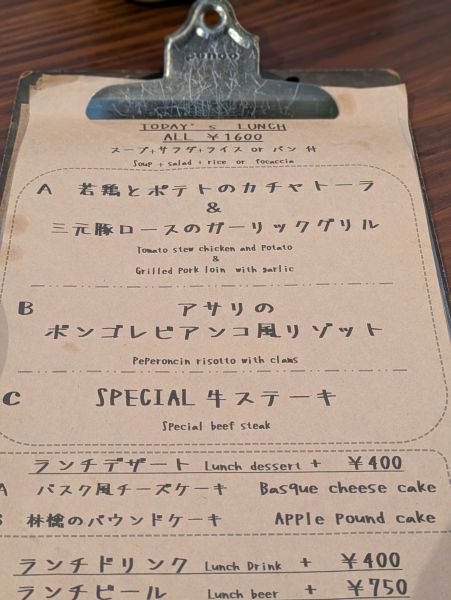 TODAY'S LUNCH
ALL ¥1600
スープ+サラダ+ライス or パン 付
Soup + salad + rice or focaccia
A 若鶏とポテトのカチャトーラ
&
三元豚ロースのガーリックグリル
Tomato stew chicken and Potato
&
Grilled Pork loin with garlic
B アサリの
ボンゴレビアンコ風リゾット
Peperoncin risotto with clams
C SPECIAL 牛ステーキ
Special beef steak
ランチデザート Lunch dessert + ¥400
A バスク風チーズケーキ Basque cheese cake
B 林檎のパウンドケーキ Apple Pound cake
ランチドリンク Lunch Drink + ¥400
ランチビール Lunch beer + ¥750